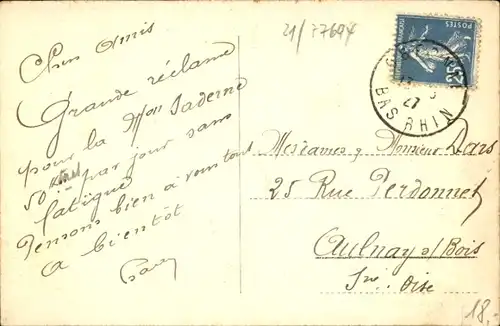 21/77694
Chers amis
Grande réclame
pour la Mon Saderne
50 par jour sans
fatigue
Pensons bien à vous tous
à bientôt
POSTES
BAS RHIN
27
Mesdames & Monsieur Dars
25 Rue Perdonnet
Aulnay s/Bois
Sne. Oise
18.-